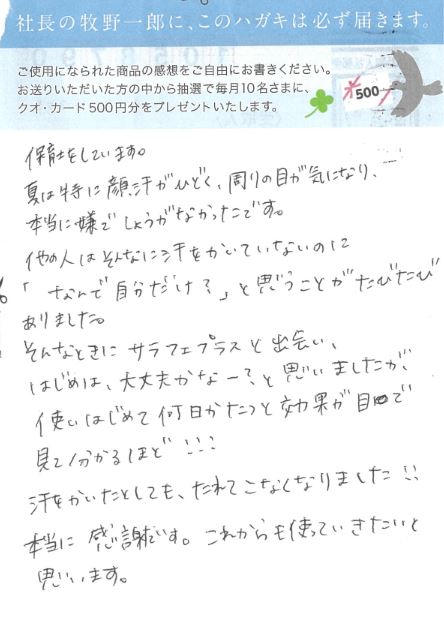 社長の牧野一郎に、このハガキは必ず届きます。
ご使用になられた商品の感想をご自由にお書きください。
お送りいただいた方の中から抽選で毎月10名さまに、
クオ・カード500円分をプレゼントいたします。
500
保育士をしています。
夏は特に顔汗がひどく、周りの目が気になり、
本当に嫌でしょうがなかったです。
他の人はそんなに汗をかいていないのに
「なんで自分だけ?」と思うことがたびたび
ありました。
そんなときにサラフェプラスと出会い、
はじめは、大丈夫かなー?と思いましたが、
使いはじめて何日かたつと効果が目で
見て分かるほど!!!
汗をかいたとしても、たれてこなくなりました!!
本当に感謝です。これからも使っていきたいと
思います。